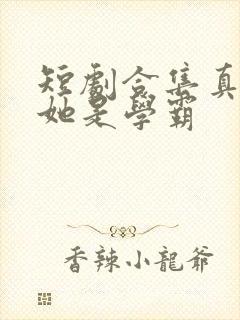 短劇合集真
她是學霸
香辣小龍爺